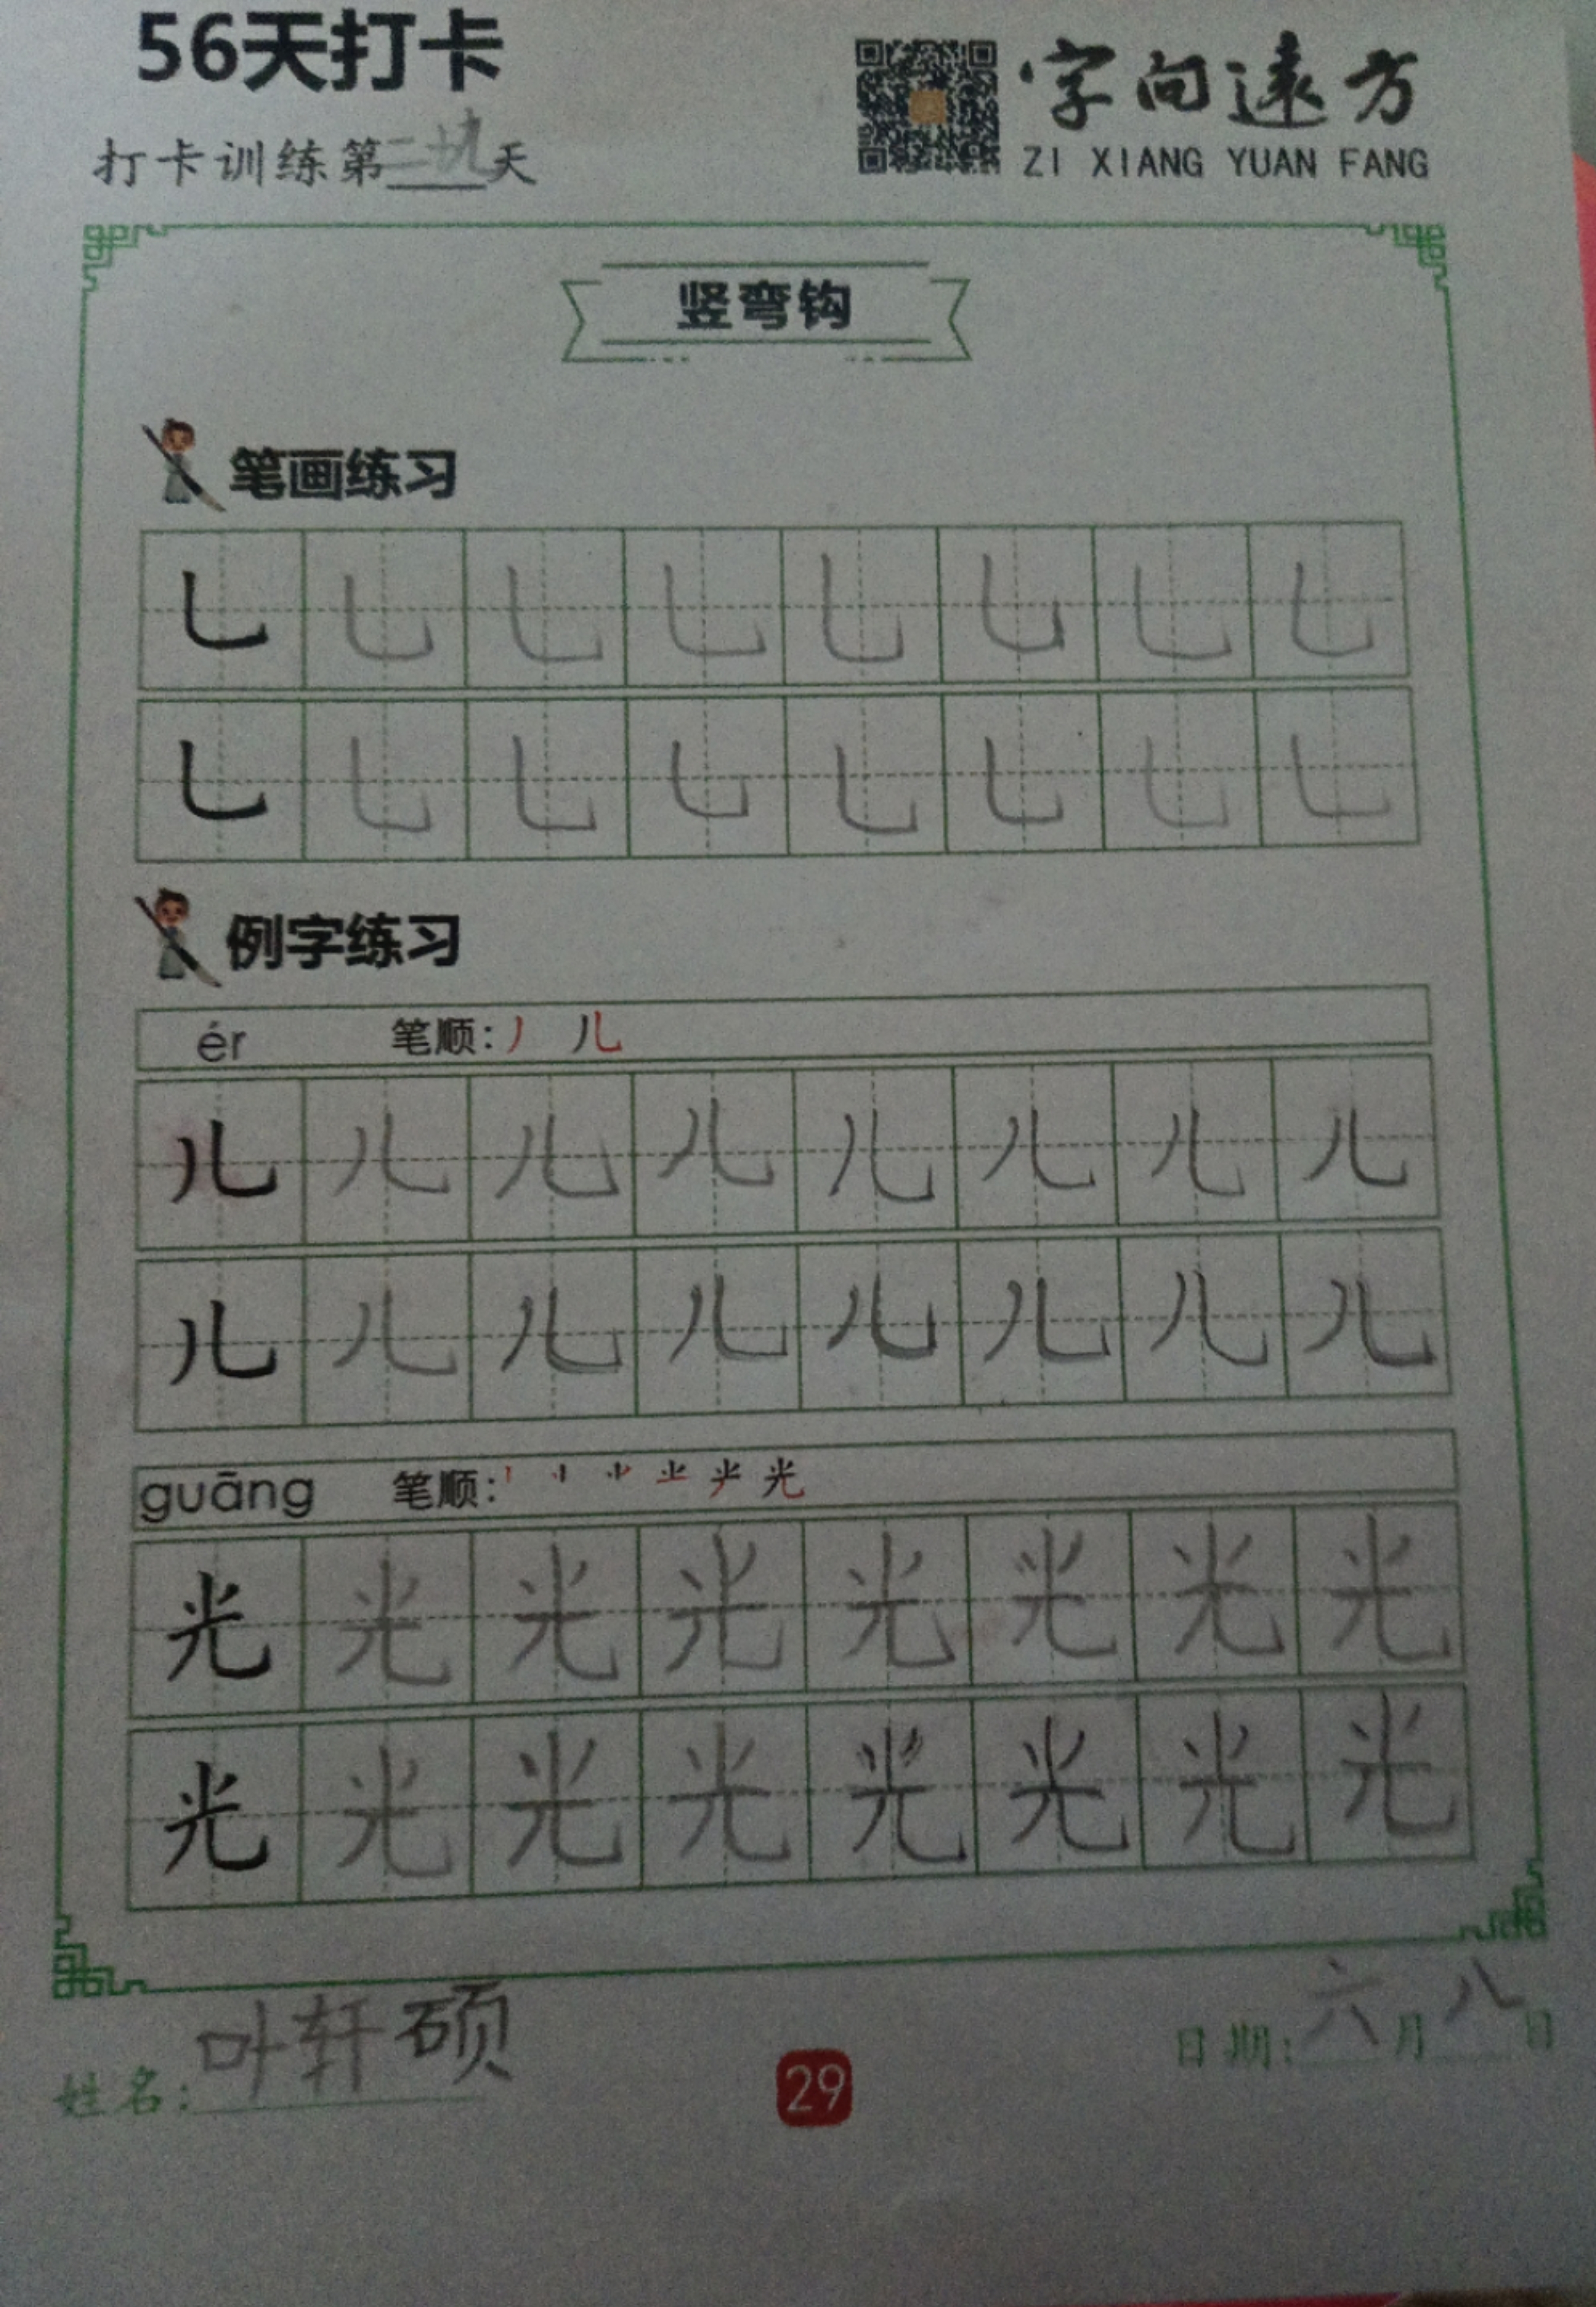 56天打卡
字向遠方
ZI XIANG YUAN FANG
打卡训练第二十九天
竖弯钩
笔画练习
㇟ ㇟ ㇟ ㇟ ㇟ ㇟ ㇟ ㇟
㇟ ㇟ ㇟ ㇟ ㇟ ㇟ ㇟ ㇟
例字练习
ér 笔顺: 丿 儿
儿 儿 儿 儿 儿 儿 儿 儿
儿 儿 儿 儿 儿 儿 儿 儿
guāng 笔顺: 光
光 光 光 光 光 光 光 光
光 光 光 光 光 光 光 光
姓名: 叶轩硕
29
日期: 六月八日